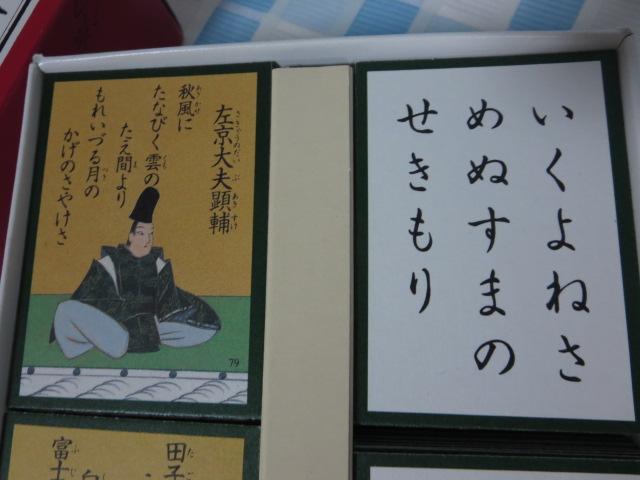 左京大夫顕輔
秋風に
たなびく雲の
たえ間より
もれいづる月の
かげのさやけさ
79
いくよねさ
めぬすまの
せきもり
田子
富士